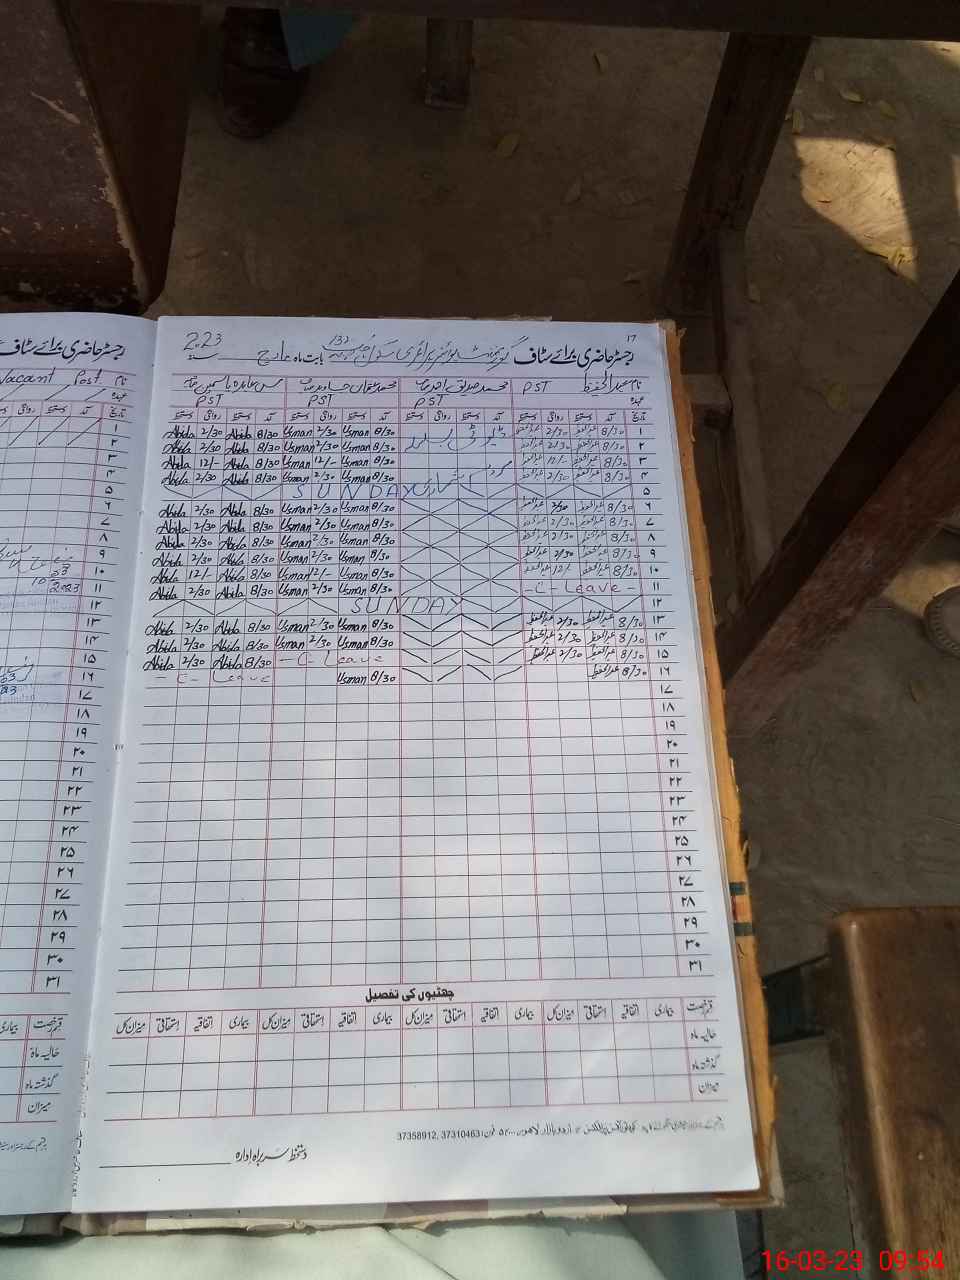 ۱۷
رجسٹر حاضری برائے سٹاف گورنمنٹ بوائز پرائمری سکول بابت ماہ مارچ سنہ 2023
نام عبدالحفیظ PST محمد صدیق PST محمد عثمان PST مس عابدہ یاسمین PST
عہدہ
تاریخ آمد دستخط روانگی دستخط آمد دستخط روانگی دستخط آمد دستخط روانگی دستخط آمد دستخط روانگی دستخط
۱ 8/30 عبدالحفیظ 2/30 عبدالحفیظ ڈیوٹی 8/30 Usman 2/30 Usman 8/30 Abida 2/30 Abida
۲ 8/30 عبدالحفیظ 2/30 عبدالحفیظ 8/30 Usman 2/30 Usman 8/30 Abida 2/30 Abida
۳ 8/30 عبدالحفیظ 12/- عبدالحفیظ 8/30 Usman 12/- Usman 8/30 Abida 12/- Abida
۴ 8/30 عبدالحفیظ 2/30 عبدالحفیظ مردم شماری 8/30 Usman 2/30 Usman 8/30 Abida 2/30 Abida
۵ SUNDAY
۶ 8/30 عبدالحفیظ 2/30 عبدالحفیظ 8/30 Usman 2/30 Usman 8/30 Abida 2/30 Abida
۷ 8/30 عبدالحفیظ 2/30 عبدالحفیظ 8/30 Usman 2/30 Usman 8/30 Abida 2/30 Abida
۸ 8/30 عبدالحفیظ 2/30 عبدالحفیظ 8/30 Usman 2/30 Usman 8/30 Abida 2/30 Abida
۹ 8/30 عبدالحفیظ 2/30 عبدالحفیظ 8/30 Usman 2/30 Usman 8/30 Abida 2/30 Abida
۱۰ 8/30 عبدالحفیظ 12/- عبدالحفیظ 8/30 Usman 12/- Usman 8/30 Abida 12/- Abida
۱۱ -C-Leave- 8/30 Usman 2/30 Usman 8/30 Abida 2/30 Abida
۱۲ SUNDAY
۱۳ 8/30 عبدالحفیظ 2/30 عبدالحفیظ 8/30 Usman 2/30 Usman 8/30 Abida 2/30 Abida
۱۴ 8/30 عبدالحفیظ 2/30 عبدالحفیظ 8/30 Usman 2/30 Usman 8/30 Abida 2/30 Abida
۱۵ 8/30 عبدالحفیظ 2/30 عبدالحفیظ -C- Leave 8/30 Abida 2/30 Abida
۱۶ 8/30 عبدالحفیظ 8/30 Usman -C- Leave
۱۷
۱۸
۱۹
۲۰
۲۱
۲۲
۲۳
۲۴
۲۵
۲۶
۲۷
۲۸
۲۹
۳۰
۳۱
چھٹیوں کی تفصیل
قسم رخصت بیماری اتفاقیہ استحقاقی میزان کل بیماری اتفاقیہ استحقاقی میزان کل بیماری اتفاقیہ استحقاقی میزان کل بیماری اتفاقیہ استحقاقی میزان کل
حالیہ ماہ
گذشتہ ماہ
میزان
اردو بازار لاہور فون: 37310463, 37358912
دستخط سربراہ ادارہ
رجسٹر حاضری برائے سٹاف
نام Vacant Post
عہدہ
تاریخ آمد
۱
۲
۳
۴
۵
۶
۷
۸
۹
۱۰
۱۱
۱۲
۱۳
۱۴
۱۵
۱۶
۱۷
۱۸
۱۹
۲۰
۲۱
۲۲
۲۳
۲۴
۲۵
۲۶
۲۷
۲۸
۲۹
۳۰
۳۱
قسم رخصت بیماری
حالیہ ماہ
گذشتہ ماہ
میزان
16-03-23 09:54